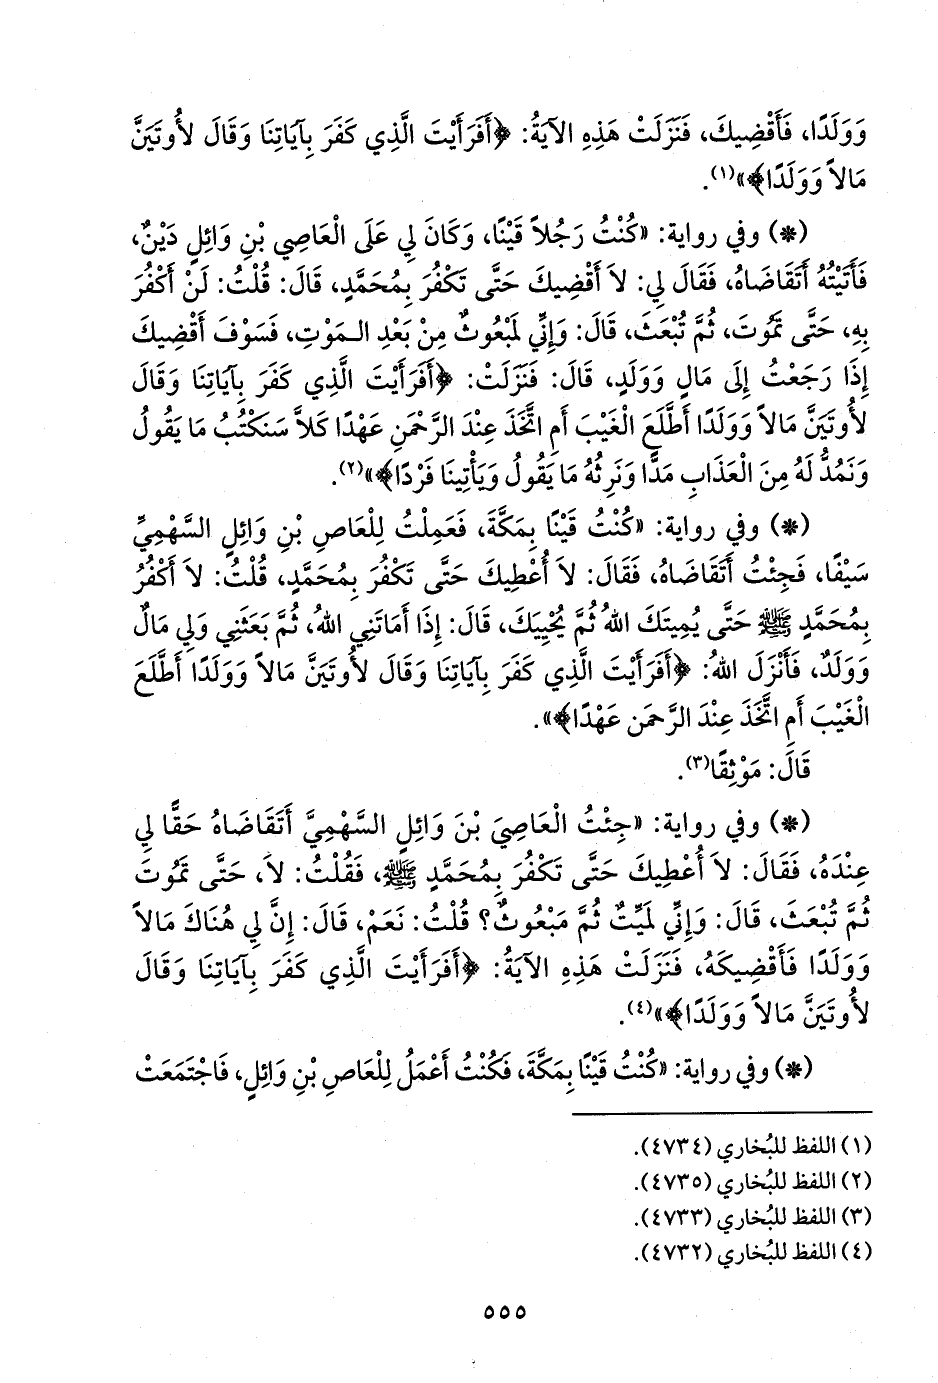 وَوَلَدًا، فَأَقْضِيكَ، فَنَزَلَتْ هَذِهِ الآيَةُ: ﴿أَفَرَأَيْتَ الَّذِي كَفَرَ بِآيَاتِنَا وَقَالَ لأُوتَيَنَّ
مَالاً وَوَلَدًا﴾»(١).
(*) وفي رواية: «كُنْتُ رَجُلاً قَيْنًا، وَكَانَ لِي عَلَى الْعَاصِي بْنِ وَائِلٍ دَيْنٌ،
فَأَتَيْتُهُ أَتَقَاضَاهُ، فَقَالَ لِي: لاَ أَقْضِيكَ حَتَّى تَكْفُرَ بِمُحَمَّدٍ، قَالَ: قُلْتُ: لَنْ أَكْفُرَ
بِهِ، حَتَّى تَمُوتَ، ثُمَّ تُبْعَثَ، قَالَ: وَإِنِّي لَمَبْعُوثٌ مِنْ بَعْدِ الـمَوْتِ، فَسَوْفَ أَقْضِيكَ
إِذَا رَجَعْتُ إِلَى مَالٍ وَوَلَدٍ، قَالَ: فَنَزَلَتْ: ﴿أَفَرَأَيْتَ الَّذِي كَفَرَ بِآيَاتِنَا وَقَالَ
لأُوتَيَنَّ مَالاً وَوَلَدًا أَطَّلَعَ الْغَيْبَ أَمِ اتَّخَذَ عِنْدَ الرَّحْمَنِ عَهْدًا كَلاَّ سَنَكْتُبُ مَا يَقُولُ
وَنَمُدُّ لَهُ مِنَ الْعَذَابِ مَدًّا وَنَرِثُهُ مَا يَقُولُ وَيَأْتِينَا فَرْدًا﴾»(٢).
(*) وفي رواية: «كُنْتُ قَيْنًا بِمَكَّةَ، فَعَمِلْتُ لِلْعَاصِ بْنِ وَائِلٍ السَّهْمِيِّ
سَيْفًا، فَجِئْتُ أَتَقَاضَاهُ، فَقَالَ: لاَ أُعْطِيكَ حَتَّى تَكْفُرَ بِمُحَمَّدٍ، قُلْتُ: لاَ أَكْفُرُ
بِمُحَمَّدٍ ﷺ حَتَّى يُمِيتَكَ اللهُ ثُمَّ يُحْيِيَكَ، قَالَ: إِذَا أَمَاتَنِي اللهُ، ثُمَّ بَعَثَنِي وَلِي مَالٌ
وَوَلَدٌ، فَأَنْزَلَ اللهُ: ﴿أَفَرَأَيْتَ الَّذِي كَفَرَ بِآيَاتِنَا وَقَالَ لأُوتَيَنَّ مَالاً وَوَلَدًا أَطَّلَعَ
الْغَيْبَ أَمِ اتَّخَذَ عِنْدَ الرَّحْمَنِ عَهْدًا﴾».
قَالَ: مَوْثِقًا(٣).
(*) وفي رواية: «جِئْتُ الْعَاصِيَ بْنَ وَائِلٍ السَّهْمِيَّ أَتَقَاضَاهُ حَقًّا لِي
عِنْدَهُ، فَقَالَ: لاَ أُعْطِيكَ حَتَّى تَكْفُرَ بِمُحَمَّدٍ ﷺ، فَقُلْتُ: لاَ، حَتَّى تَمُوتَ
ثُمَّ تُبْعَثَ، قَالَ: وَإِنِّي لَمَيِّتٌ ثُمَّ مَبْعُوثٌ؟ قُلْتُ: نَعَمْ، قَالَ: إِنَّ لِي هُنَاكَ مَالاً
وَوَلَدًا فَأَقْضِيكَهُ، فَنَزَلَتْ هَذِهِ الآيَةُ: ﴿أَفَرَأَيْتَ الَّذِي كَفَرَ بِآيَاتِنَا وَقَالَ
لأُوتَيَنَّ مَالاً وَوَلَدًا﴾»(٤).
(*) وفي رواية: «كُنْتُ قَيْنًا بِمَكَّةَ، فَكُنْتُ أَعْمَلُ لِلْعَاصِ بْنِ وَائِلٍ، فَاجْتَمَعَتْ
(١) اللفظ للبُخاري (٤٧٣٤).
(٢) اللفظ للبُخاري (٤٧٣٥).
(٣) اللفظ للبُخاري (٤٧٣٣).
(٤) اللفظ للبُخاري (٤٧٣٢).
٥٥٥